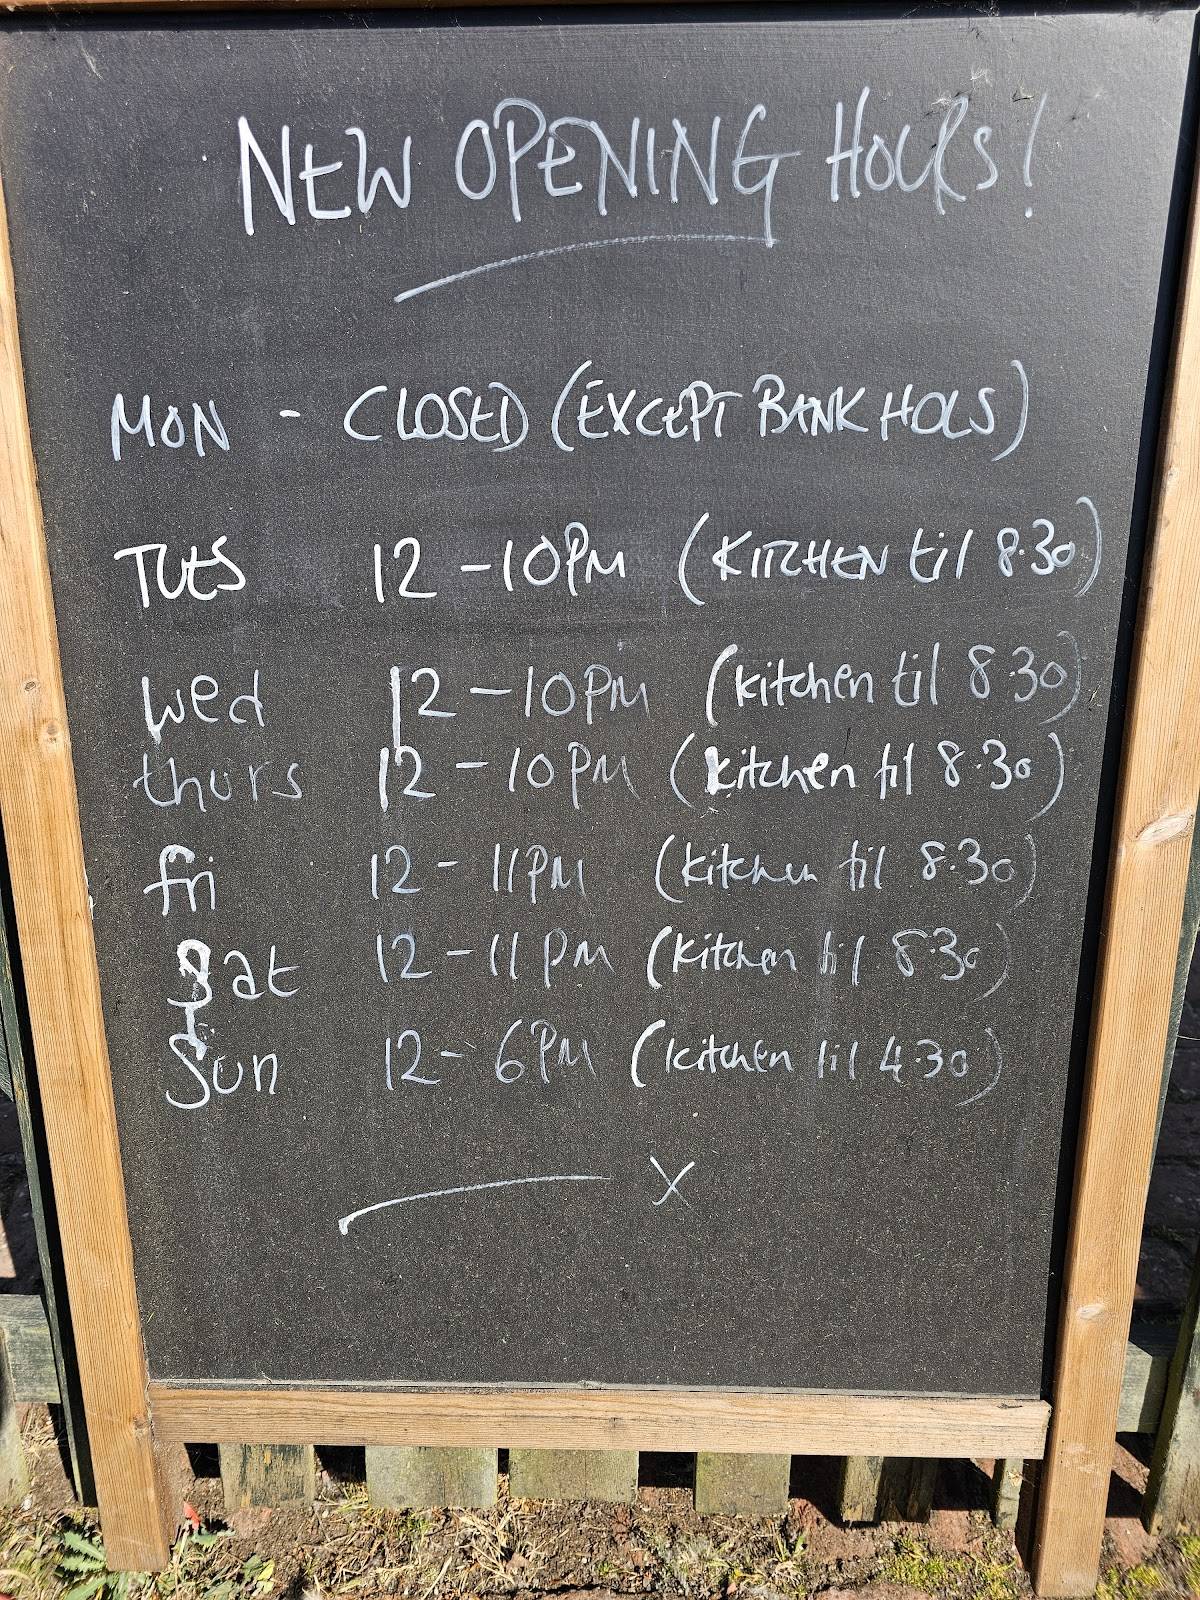 NEW OPENING HOURS!
MON - CLOSED (EXCEPT BANK HOLS)
TUES 12 - 10PM (KITCHEN til 8.30)
wed 12 - 10PM (kitchen til 8.30)
thurs 12 - 10PM (kitchen til 8.30)
fri 12 - 11PM (kitchen til 8.30)
Sat 12 - 11PM (kitchen til 8.30)
Sun 12 - 6PM (kitchen til 4.30)
X